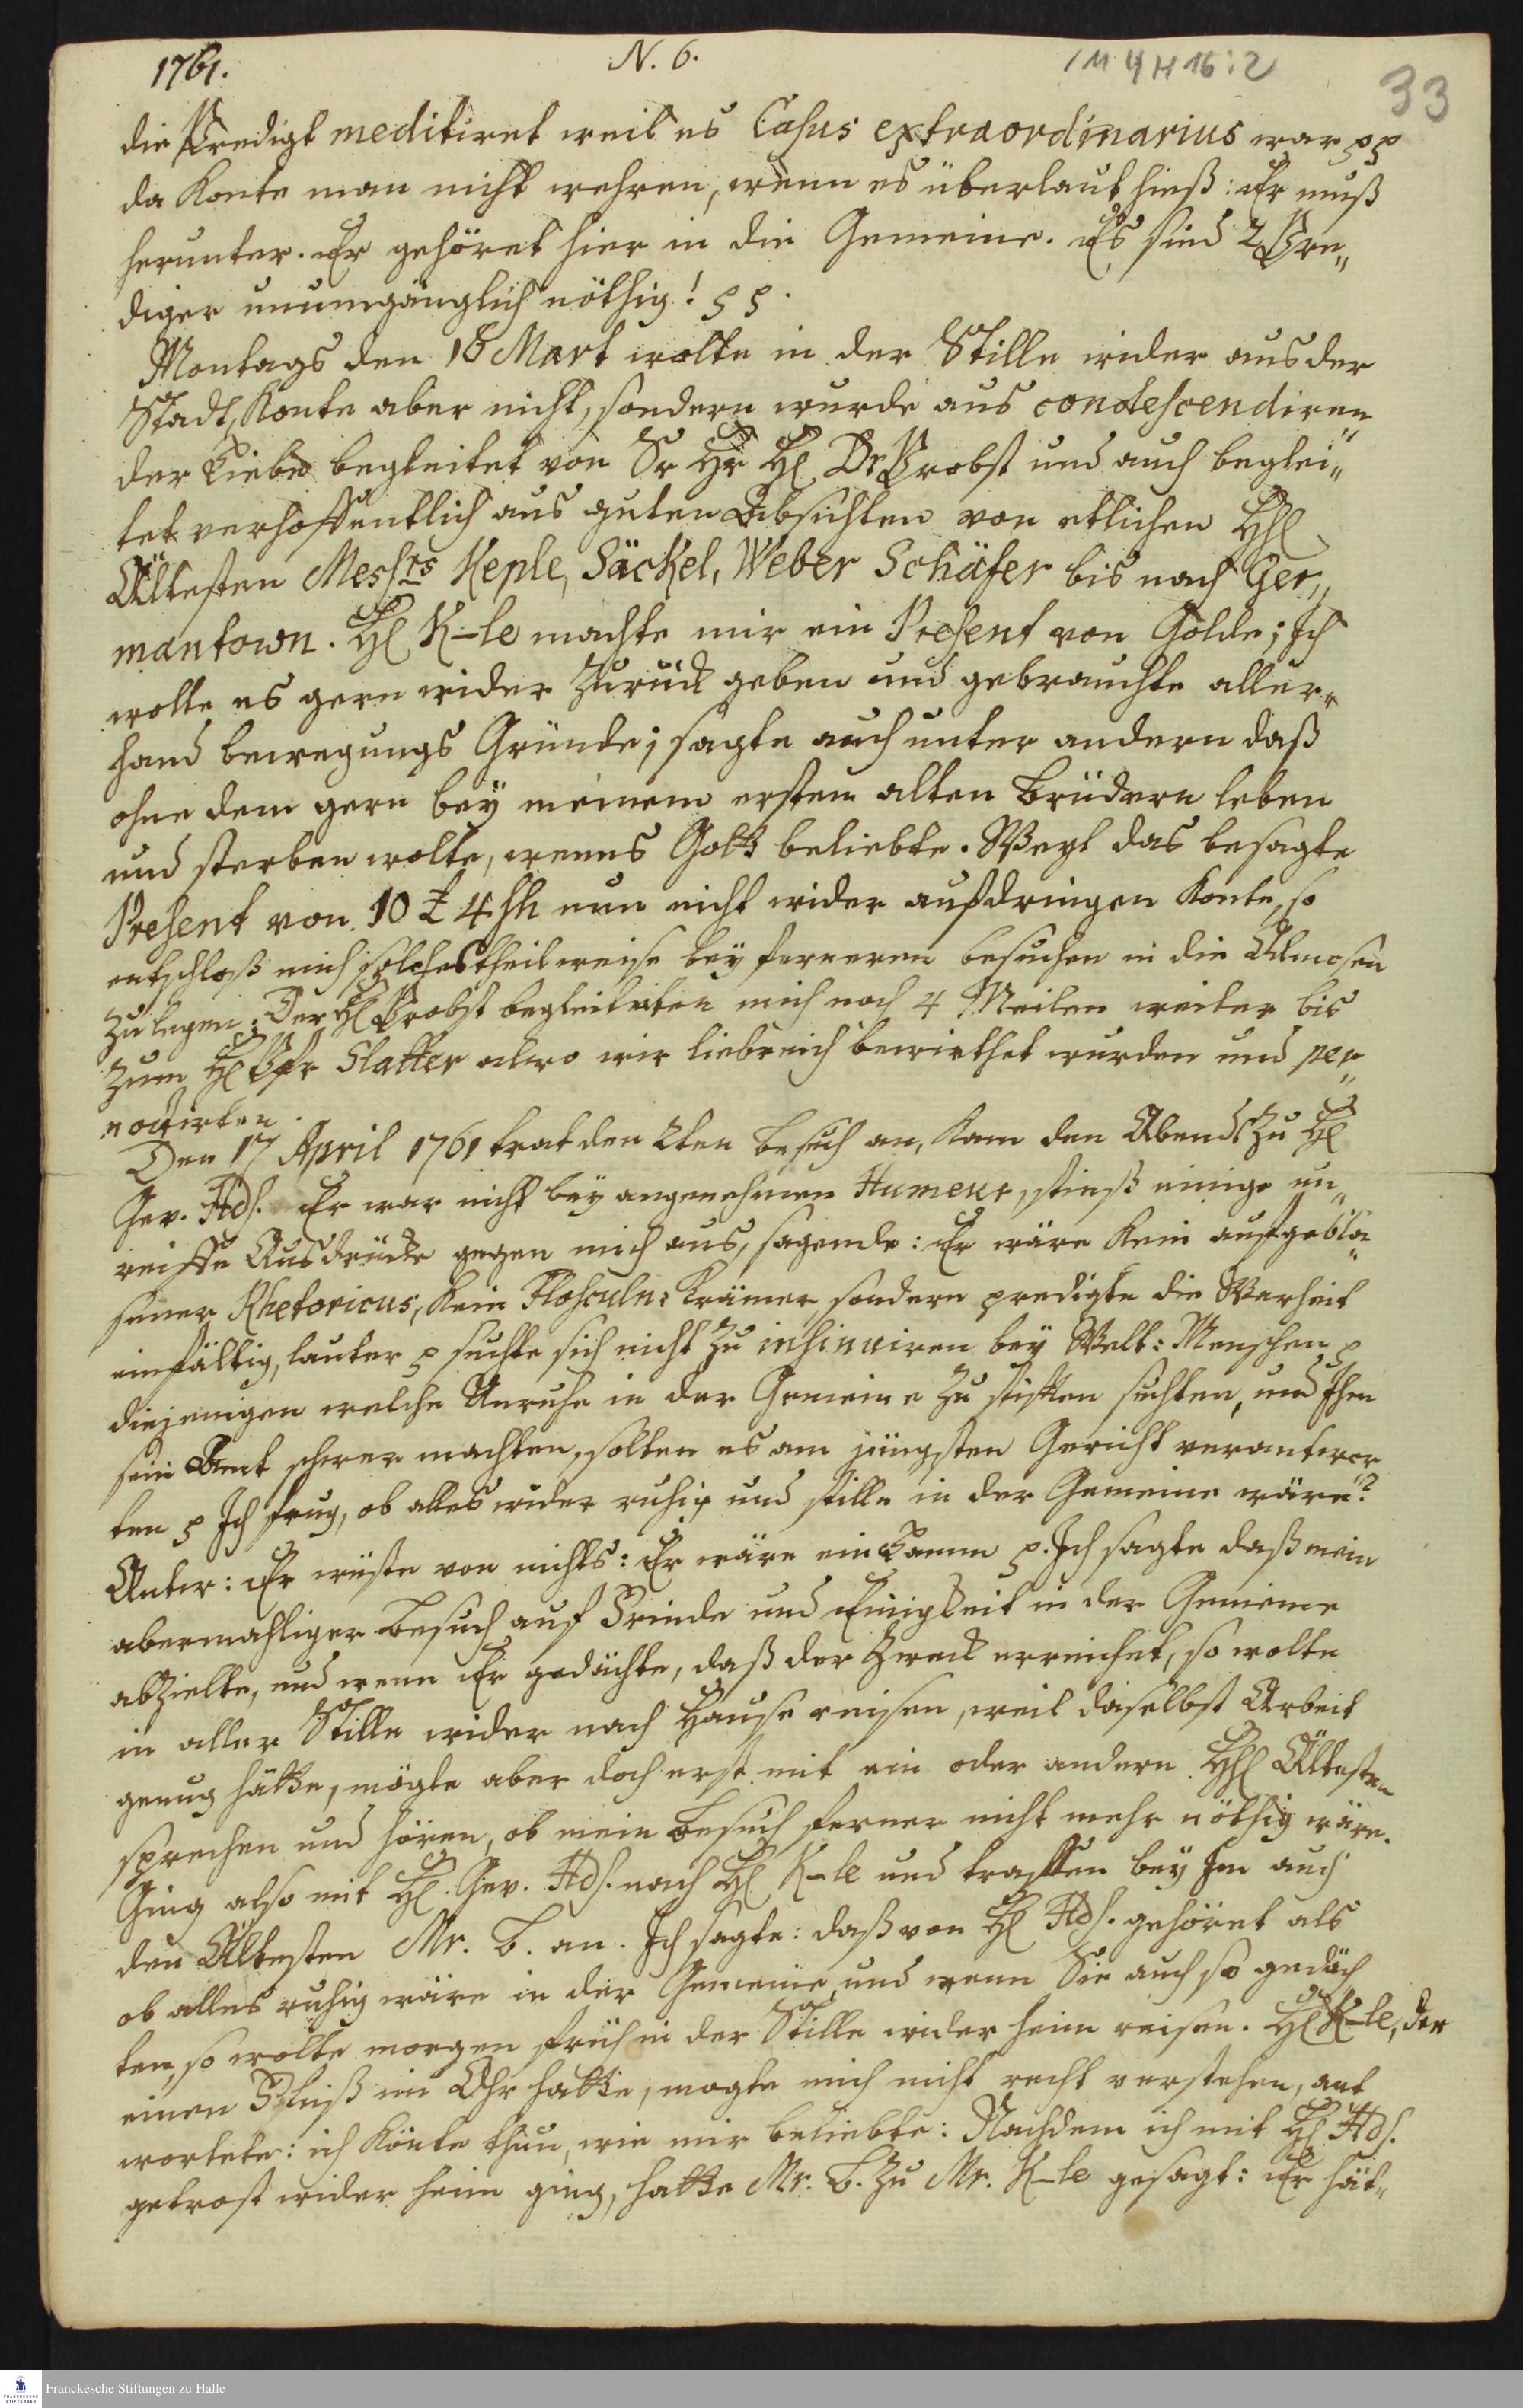 1761.
N. 6.
/ M 4 H 16 : 2
33
die Predigt meditiret weil es Casus extraordinarius war pp
da Konte man nicht wehren, wenn es überlaut hieß: Er muß
herunter. Er gehöret hier in die Gemeine. Es sind 2 Pre„
diger unumgänglich nöthig! p p.
Montags den 18 Mart wolte in der Stille wider aus der
Stadt, Konte aber nicht, sondern wurde aus condescendiren„
der Liebe begleitet von Sr Hr Dr Probst und auch beglei„
tet verhoffentlich aus guten Absichten von etlichen HhE
Ältesten Messrs Keple, Säckel, Weber Schäfer bis nach Ger„
mantown. HE K-le machte mir ein Present von Golde; Ich
wolte es gern wider zurück geben und gebrauchte aller„
hand bewegungs Gründe; sagte auch unter andern daß
ohne dem gern bey meinem ersten alten Brüdern leben
und sterben wolte, wenns Gott beliebte. Weyl das besagte
Present von 10 £ 4 sh nun nicht wider aufdringen Konte, so
entschloß mich solches theilweise bey ferneren besuchen in die Almosen
zu legen. Der HE Probst begleiteten mich noch 4 Meilen weiter bis
zum HE Pfr Slatter alwo wir liebreich bewirthet wurden und per„
noctirten.
Den 17 April 1761 trat den 2ten Besuch an, kam den Abend zu HE
Gev. Hds. Er war nicht bey angenehmen Humeur, stieß einige un„
reiffe Ausdrücke gegen mich aus, sagende: Er wäre kein aufgebla„
sener Rhetoricus, kein Flosculn: Krämer, sondern predigte die Warheit
einfältig, lauter p suchte sich nicht zu insinuiren bey Welt: Menschen p
diejenigen welche Unruhe in der Gemeine zu stifften suchten, und Ihm
sein Amt schwer machten, solten es am jüngsten Gericht verantwor„
ten p Ich frug, ob alles wider ruhig und stille in der Gemeine wäre?
Antw: Er wüste von nichts: Er wäre ein Lamm p. Ich sagte daß mein
abermahliger Besuch auf Friede und Einigkeit in der Gemeine
abzielte, und wenn Er gedächte, daß der Zweck erreichet, so wolte
in aller Stille wider nach Hause reisen, weil daselbst Arbeit
genug hätte, mögte aber doch erst mit ein oder andern HhE Ältesten
sprechen und hören, ob mein Besuch ferner nicht mehr nöthig wäre.
Ging also mit HE. Gev. Hds. nach HE K-le und traffen bey Im auch
den Ältesten Mr. B. an. Ich sagte: daß von HE Hds. gehöret als
ob alles ruhig wäre in der Gemeine, und wenn Sie auch so gedäch
ten, so wolte morgen früh in der Stille wider heim reisen. HE K-le, der
einen Fluß im Ohr hatte, mogte mich nicht recht verstehen, ant
wortete: ich könte thun, wie mir beliebte: Nachdem ich mit HE Hds.
getrost wider heim ging, hatte Mr. B. zu Mr. K-le gesagt: Er hät„
FRANCKESCHE STIFTUNGEN
Franckesche Stiftungen zu Halle